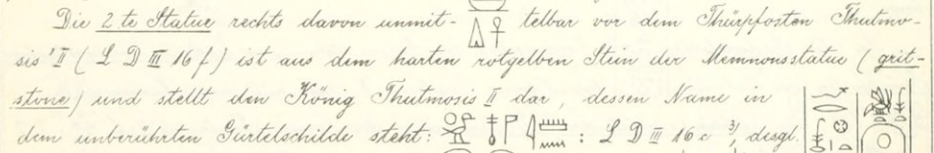 Die 2 te Statue rechts davon unmit- telbar vor dem Thürpfosten Thutmo-
sis' II ( L D III 16 f ) ist aus dem harten rotgelben Stein der Memnonsstatue ( grit-
stone ) und stellt den König Thutmosis II dar, dessen Name in
dem unberührten Gürtelschilde steht: : L D III 16 c 3), desgl.